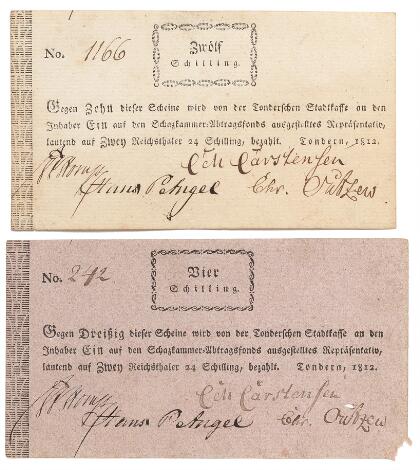 No. 1166
Zwölf
Schilling.
Gegen Zehn dieser Scheine wird von der Tonderschen Stadtkasse an den
Inhaber Ein auf den Schazkammer-Abtragsfonds ausgestelltes Repräsentativ,
lautend auf Zwey Reichsthaler 24 Schilling, bezahlt. Tondern, 1812.
Carstensen
Hans Petugel Chr. Outzen
No. 242
Vier
Schilling.
Gegen Dreißig dieser Scheine wird von der Tonderschen Stadtkasse an den
Inhaber Ein auf den Schazkammer-Abtragsfonds ausgestelltes Repräsentativ,
lautend auf Zwey Reichsthaler 24 Schilling, bezahlt. Tondern, 1812.
Carstensen
Hans Chr. Outzen